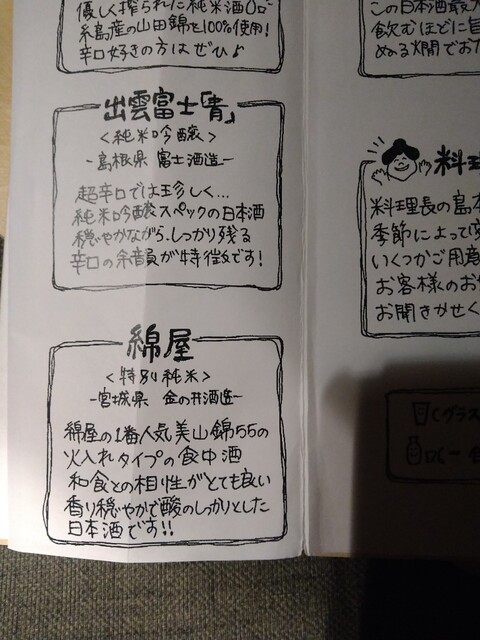 優しく搾られた純米酒
糸島産の山田錦を100%使用!
辛口好きの方はぜひ♪
出雲富士「青」
<純米吟醸>
-島根県 富士酒造-
超辛口では珍しく...
純米吟醸スペックの日本酒
穏やかながら、しっかり残る
辛口の余韻が特徴です!
綿屋
<特別純米>
-宮城県 金の井酒造-
綿屋の1番人気美山錦55の
火入れタイプの食中酒
和食との相性がとても良い
香り穏やかで酸のしっかりとした
日本酒です!!
この日本酒最
飲むほどに旨
ぬる燗でお
料理
料理長の島
季節によって
いくつかご用意
お客様のお
お聞きかせく
(グラス